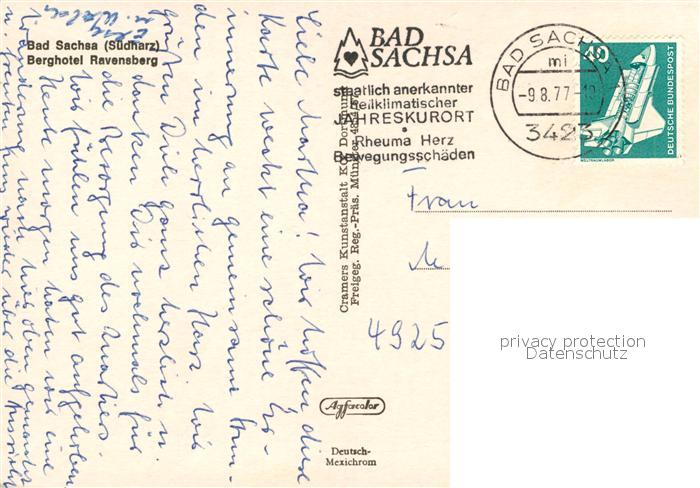 Bad Sachsa (Südharz)
Berghotel Ravensberg
BAD
SACHSA
staatlich anerkannter
heilklimatischer
JAHRESKURORT
Rheuma Herz
Bewegungsschäden
BAD SACHSA
mi
-9.8.77-
3423
40
DEUTSCHE BUNDESPOST
WELTRAUMLABOR
Frau
4925
privacy protection
Datenschutz
Cramers Kunstanstalt KG, Dortmund
Freigeg. Reg.-Präs. Münster
Agfacolor
Deutsch-
Mexichrom
Liebe Martha! Wir hoffen diese
Karte weckt eine schöne Er-
innerung an gemeinsame Stun-
den im herrlichen Harz. Wir
grüßen Dich ganz herzlich u.
danken Dir nochmals für
die Besorgung des Quartiers.
Wir fühlen uns gut aufgehoben.
Heute morgen haben wir eine
Wanderung nach hier oben gemacht
u. freuten uns wieder über die Aussicht.